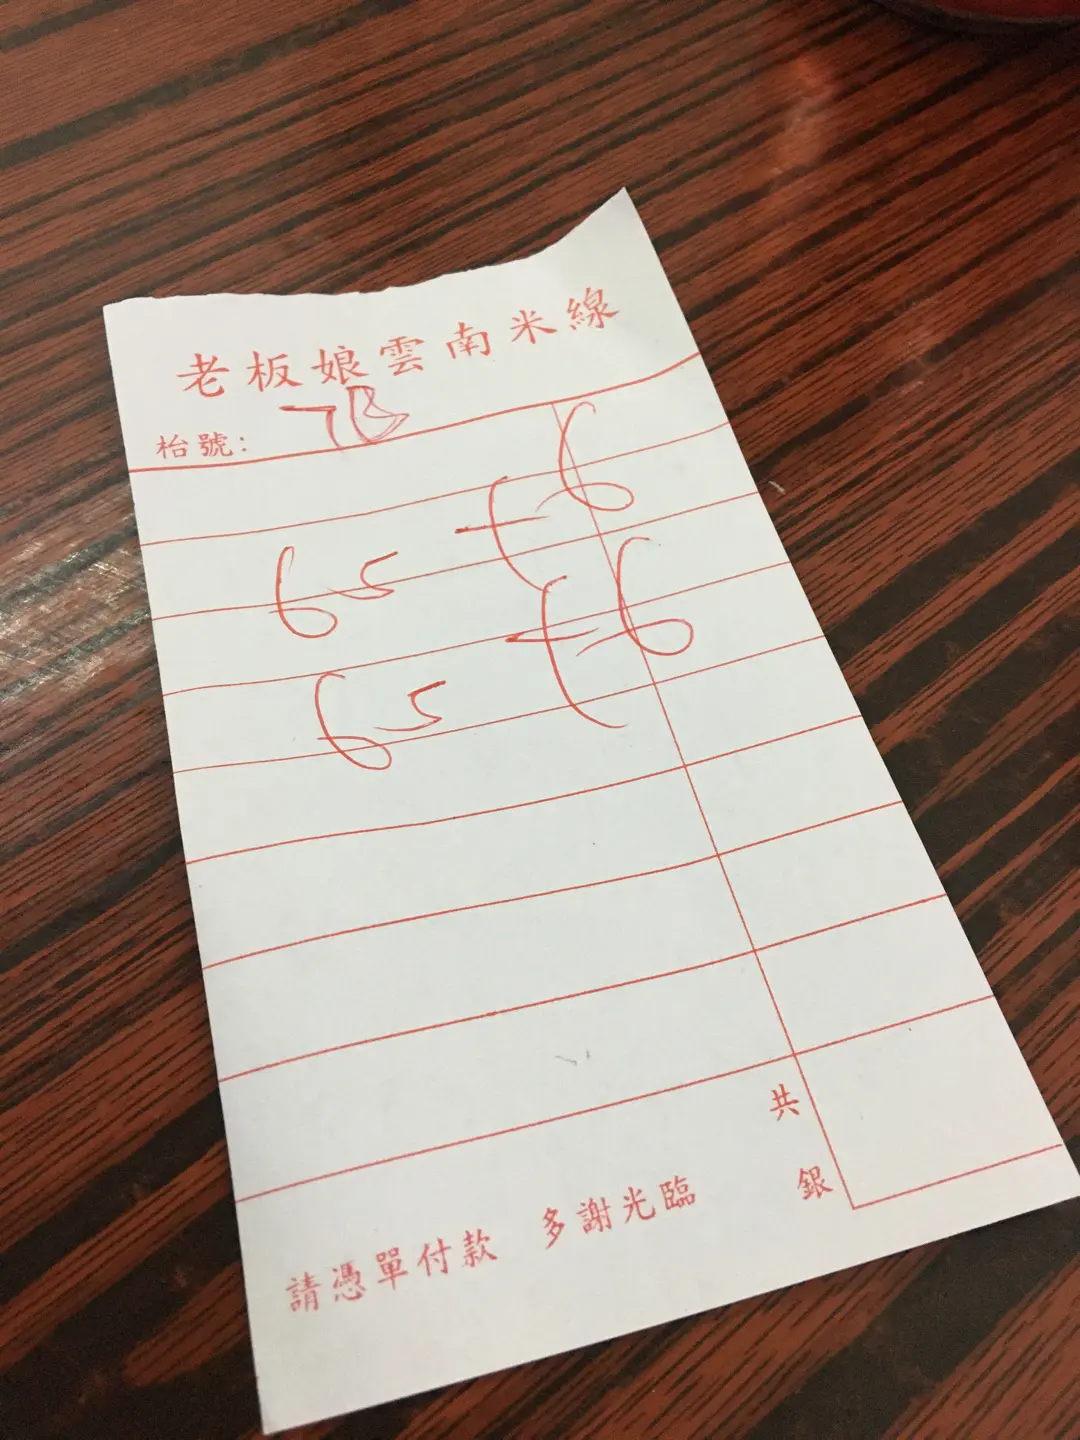 老板娘雲南米線
枱號:
65 + 6
65 + 6
共
銀
請憑單付款 多謝光臨